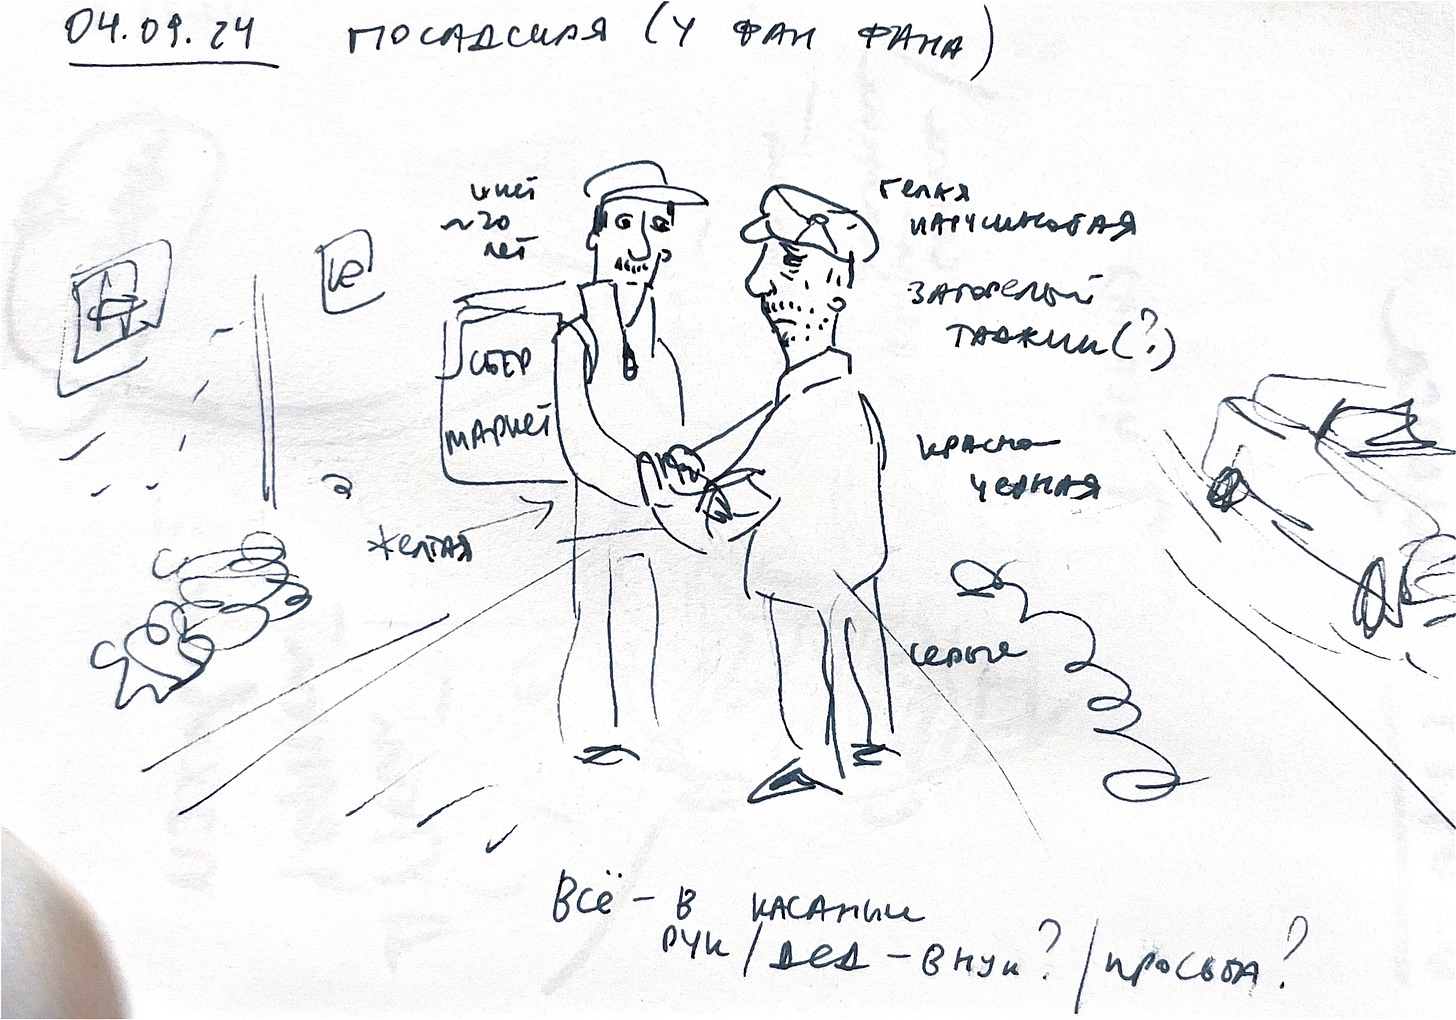 04.09.24 ПОСАДСКАЯ (У ФАН ФАНА)
~20
лет
СБЕР
МАРКЕТ
желтая
ЗАГОРЕЛЫЙ
ТАДЖИК(?)
КРАСНО–
ЧЕРНАЯ
серые
ВСЁ – В КАСАНИИ
РУК / ДЕД – ВНУК? / ПРОСЬБА?